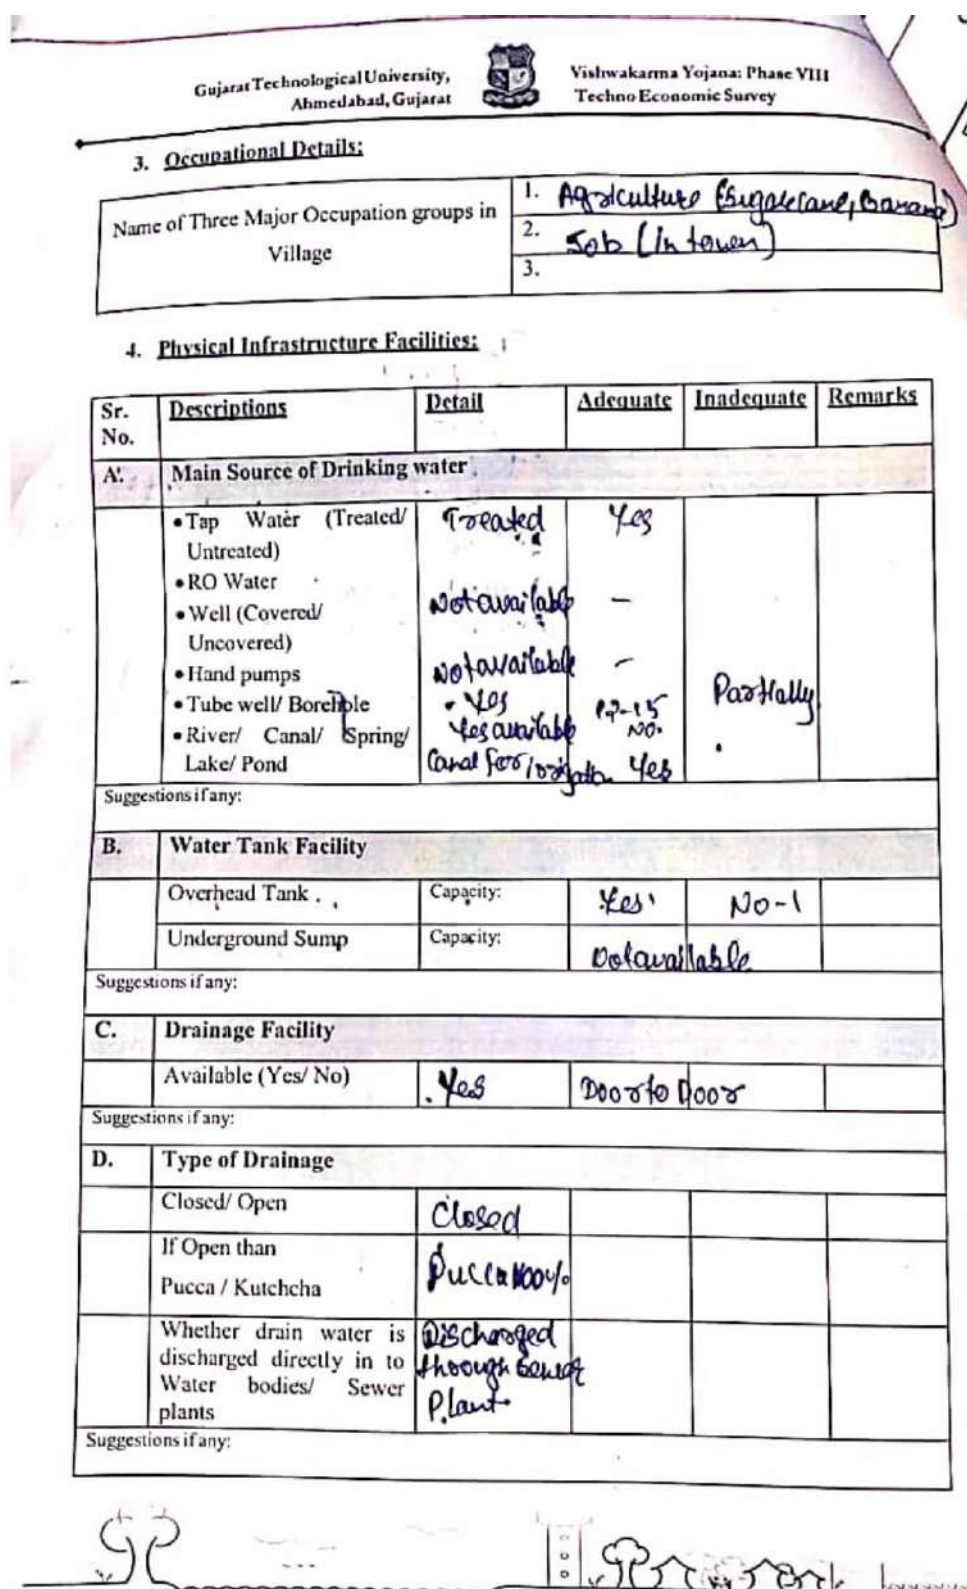 Gujarat Technological University,
Ahmedabad, Gujarat
Vishwakarma Yojana: Phase VIII
Techno Economic Survey
3. Occupational Details:
Name of Three Major Occupation groups in
Village
1. Agriculture (Sugarcane, Banana)
2. Job (In town)
3.
4. Physical Infrastructure Facilities:
Sr.
No.
Descriptions
Detail
Adequate
Inadequate
Remarks
A. Main Source of Drinking water
•Tap Water (Treated/
Untreated)
Treated
Yes
•RO Water
•Well (Covered/
Uncovered)
Not available –
•Hand pumps
Not available –
•Tube well/ Borehole
Yes
12-15
No.
Partially
•River/ Canal/ Spring/
Lake/ Pond
Yes available
Canal for irrigation
Yes
Suggestions if any:
B. Water Tank Facility
Overhead Tank
Capacity:
Yes
No-1
Underground Sump
Capacity:
Not available
Suggestions if any:
C. Drainage Facility
Available (Yes/ No)
Yes
Door to Door
Suggestions if any:
D. Type of Drainage
Closed/ Open
Closed
If Open than
Pucca / Kutchcha
Pucca 100%
Whether drain water is
discharged directly in to
Water bodies/ Sewer
plants
Discharged
through Sewer
Plant
Suggestions if any: